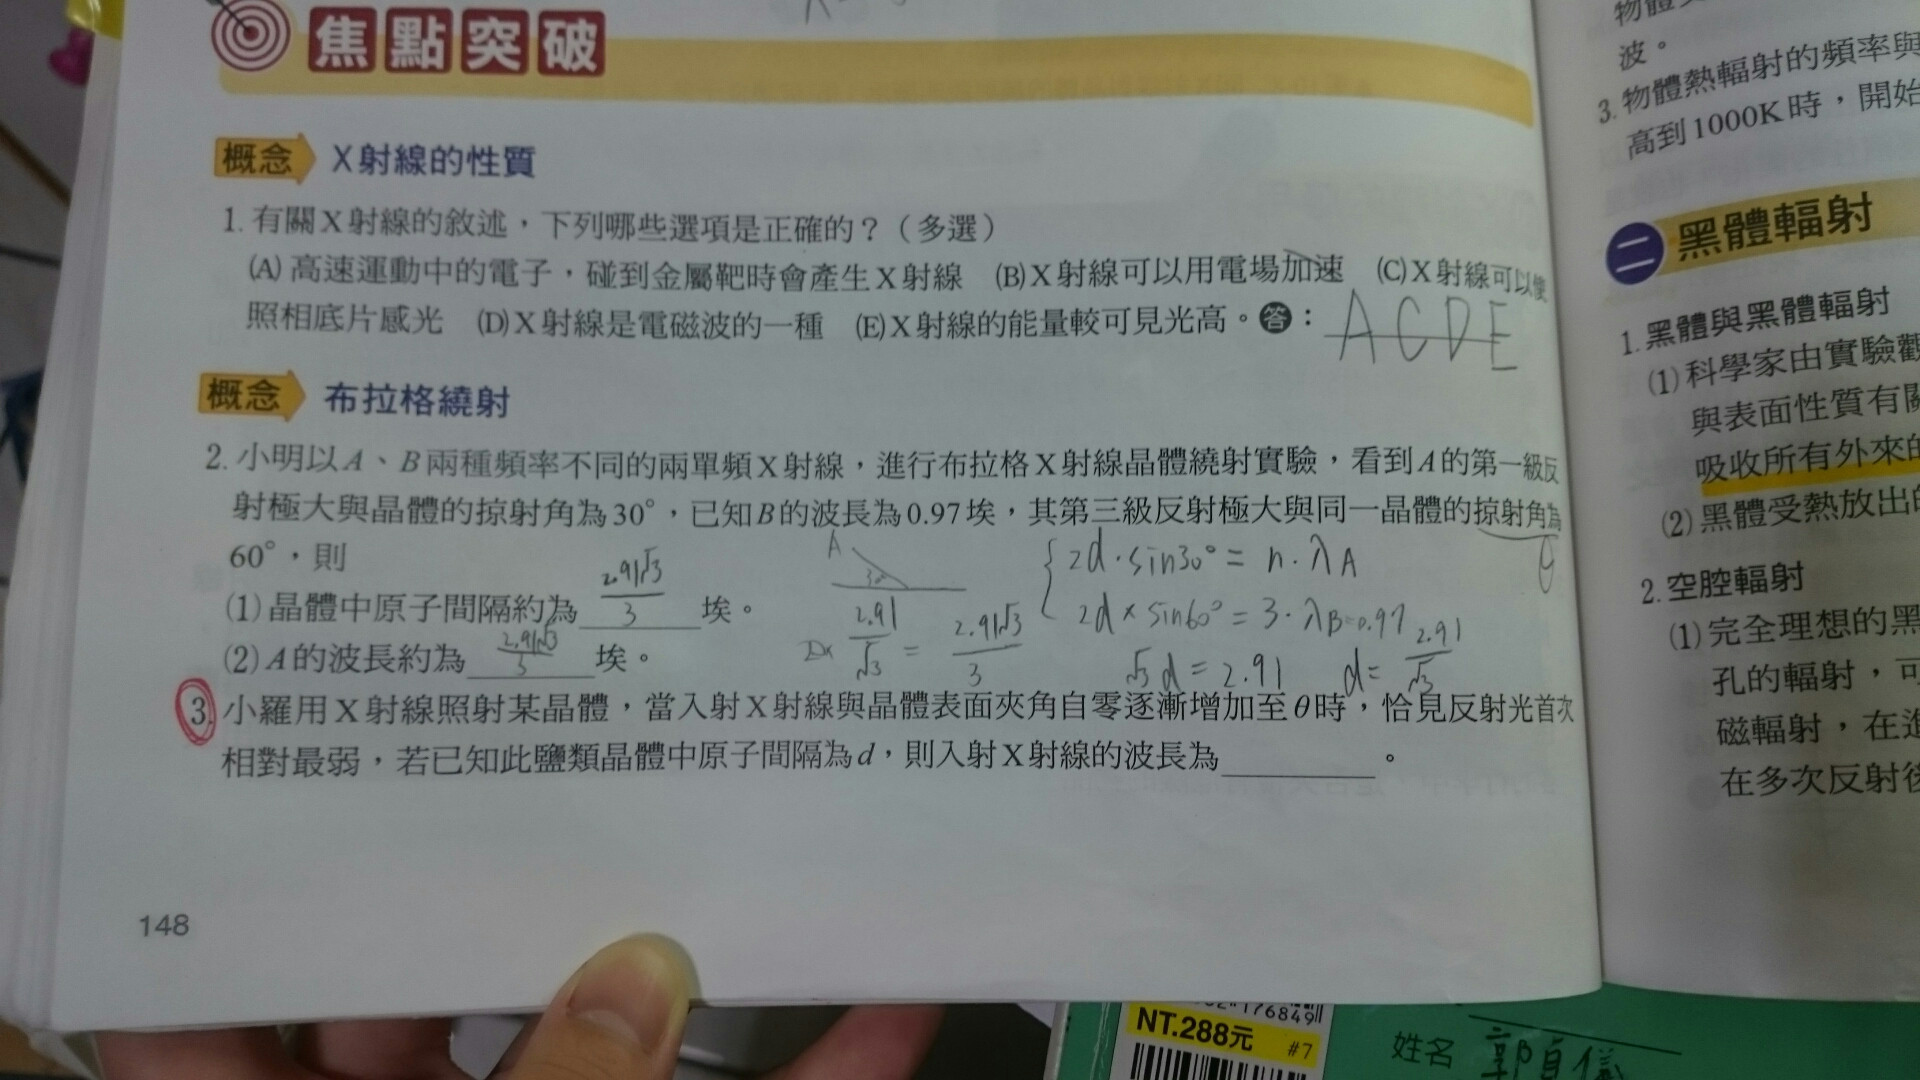 焦點突破
概念 X射線的性質
1. 有關X射線的敘述，下列哪些選項是正確的？（多選）
(A) 高速運動中的電子，碰到金屬靶時會產生X射線 (B)X射線可以用電場加速 (C)X射線可以使
照相底片感光 (D)X射線是電磁波的一種 (E)X射線的能量較可見光高。答：ACDE
概念 布拉格繞射
2. 小明以A、B兩種頻率不同的兩單頻X射線，進行布拉格X射線晶體繞射實驗，看到A的第一級反
射極大與晶體的掠射角為30°，已知B的波長為0.97埃，其第三級反射極大與同一晶體的掠射角為
60°，則
(1)晶體中原子間隔約為 2.91√3/3 埃。
(2)A的波長約為 2.91√3/3 埃。
A
30°
2d·sin30° = n·λA
θ
2d×sin60° = 3·λB=0.97
2.91/√3 = 2.91√3/3
√3 d = 2.91 d = 2.91/√3
3. 小羅用X射線照射某晶體，當入射X射線與晶體表面夾角自零逐漸增加至θ時，恰見反射光首次
相對最弱，若已知此鹽類晶體中原子間隔為d，則入射X射線的波長為＿＿＿。
148
波。
3. 物體熱輻射的頻率與
高到1000K時，開始
二 黑體輻射
1. 黑體與黑體輻射
(1)科學家由實驗觀
與表面性質有關
吸收所有外來的
(2)黑體受熱放出的
2. 空腔輻射
(1)完全理想的黑
孔的輻射，可
磁輻射，在進
在多次反射後
176849
NT.288元 #7
姓名